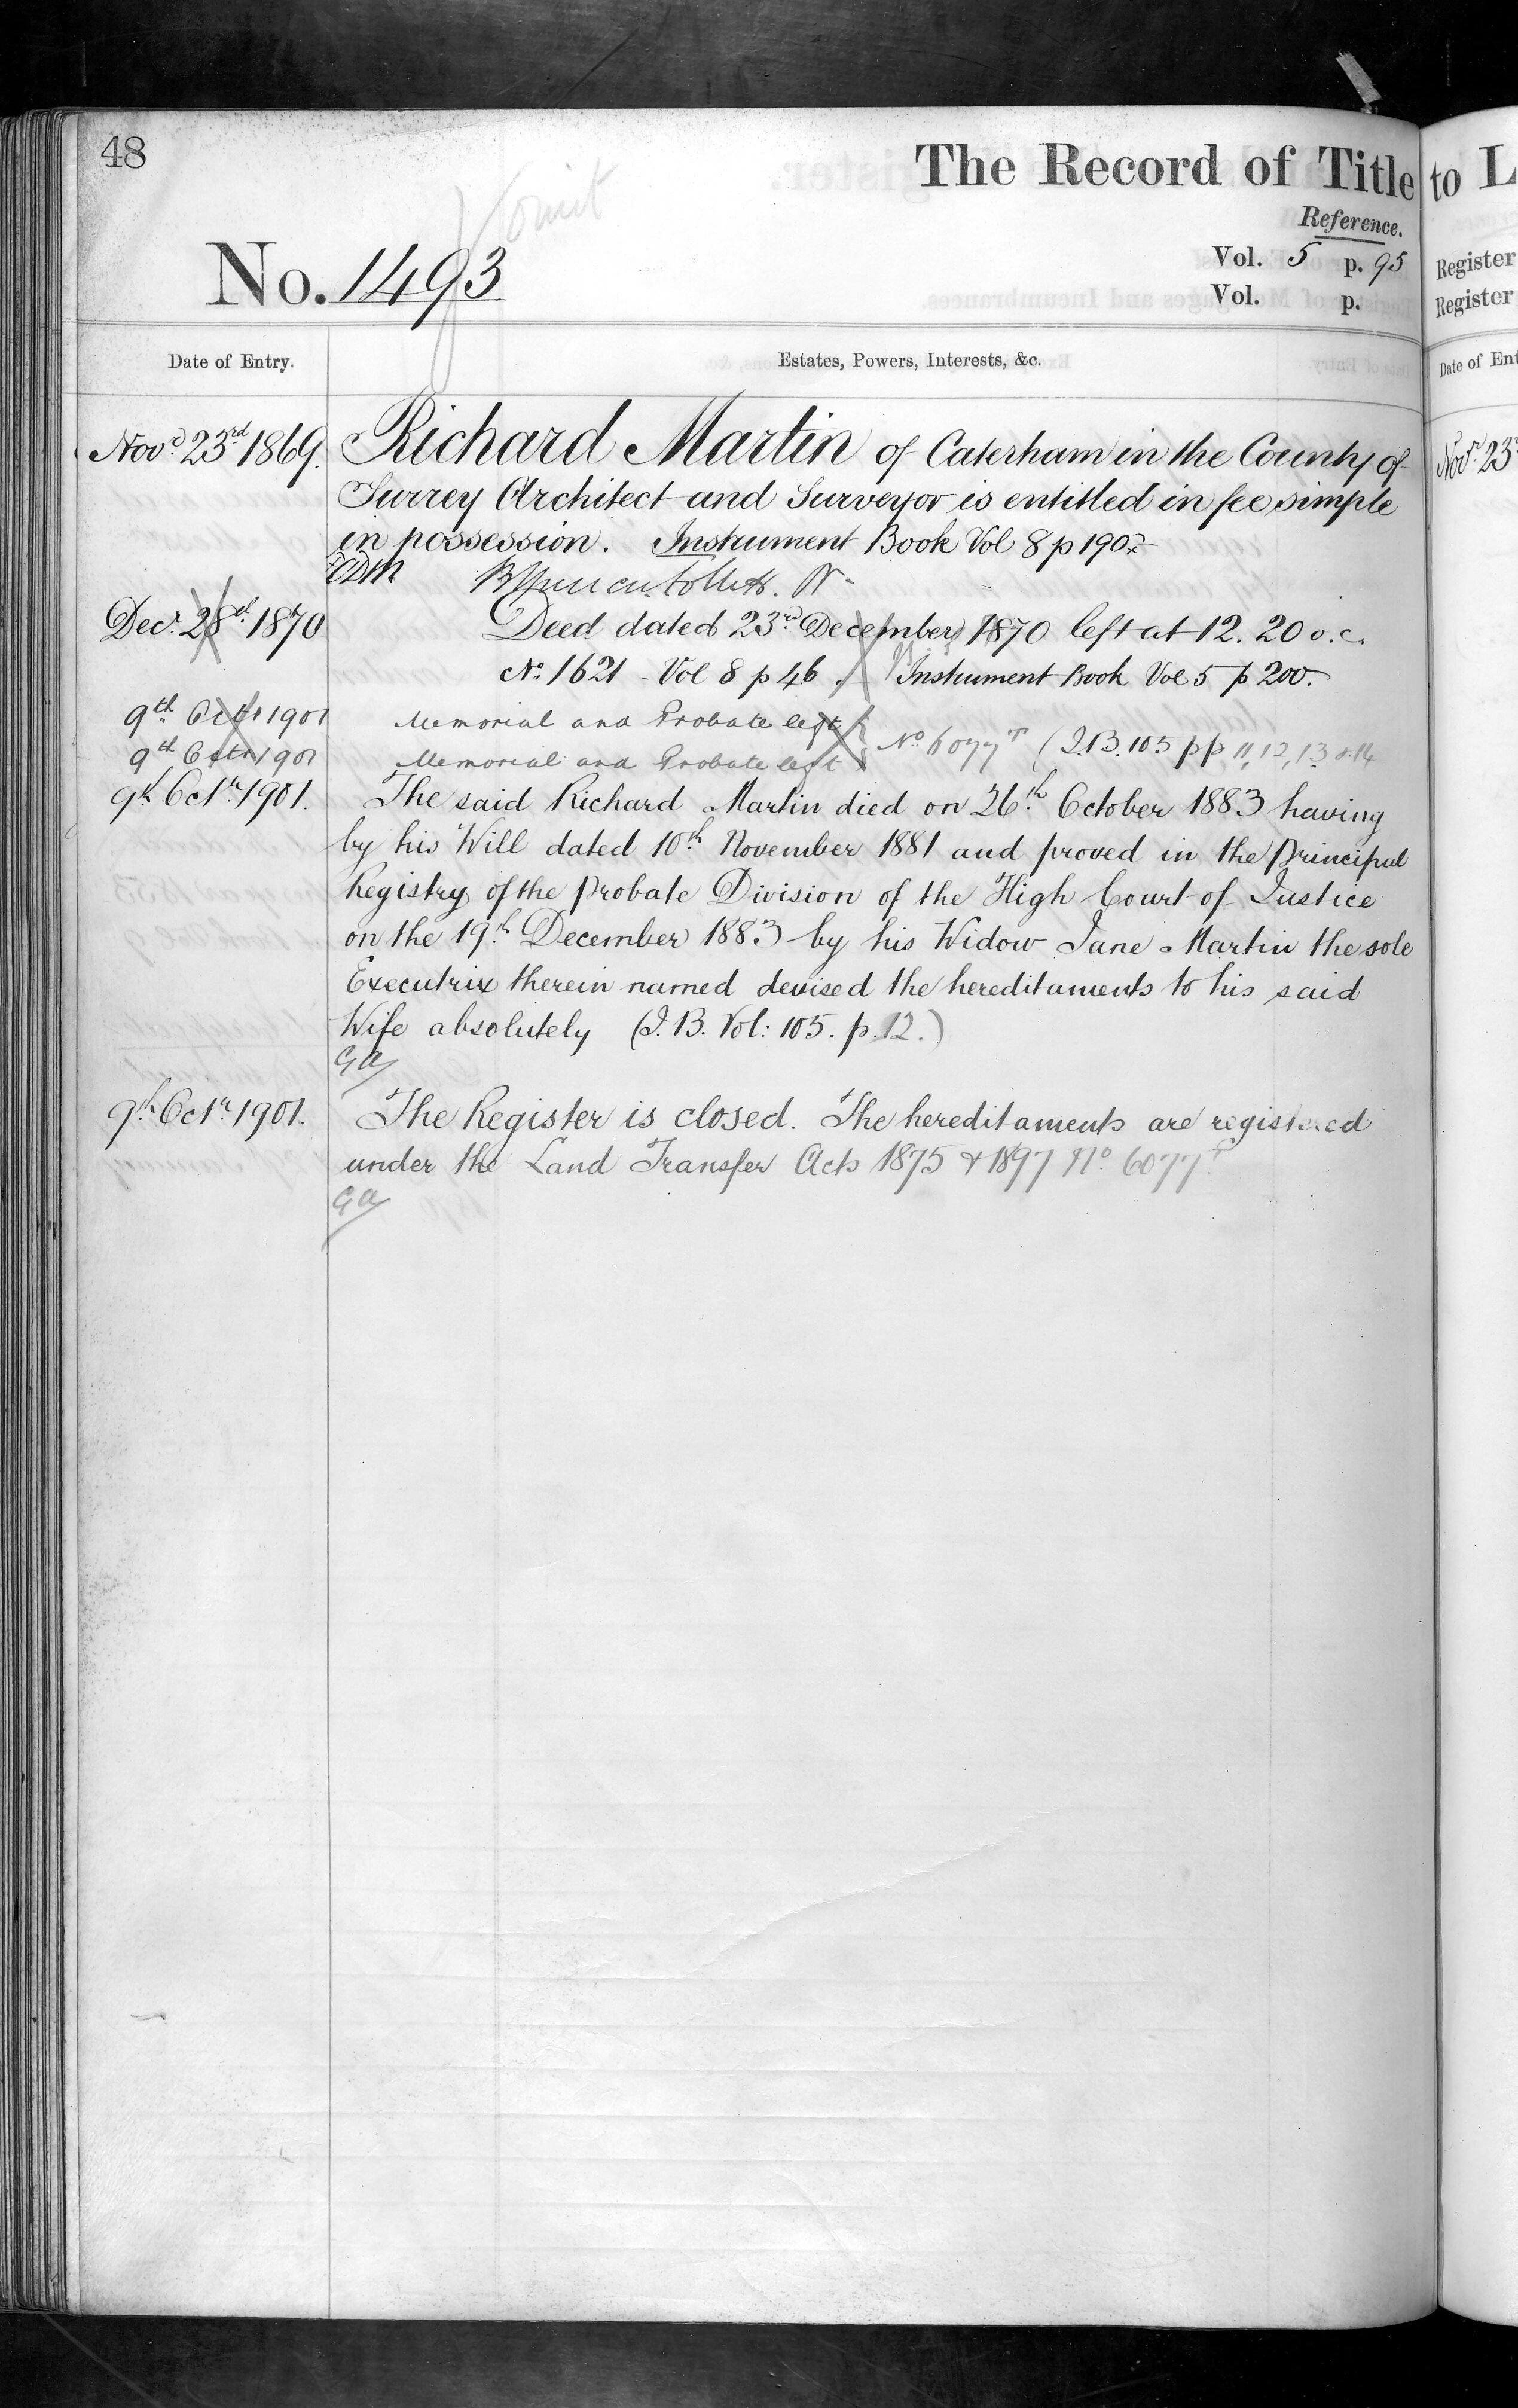 48
The Record of Title to L
Reference.
Vol. 5 p. 95
Register
No. 1493
Vol. p.
Register
Date of Entry.
Estates, Powers, Interests, &c.
Date of Ent
Novr. 23rd 1869. Richard Martin of Caterham in the County of
Novr. 23
Surrey Architect and Surveyor is entitled in fee simple
in possession. Instrument Book Vol 8 p 190.
Decr. 28th 1870 Deed dated 23rd December 1870 left at 12.20 o.c.
No. 1621 - Vol 8 p 46. Instrument Book Vol 5 p 200.
9th Octr 1901 Memorial and Probate left
No 6077T (I.B. 105 pp 11, 12, 13 & 14
9th Octr 1901 Memorial and Probate left
9th Octr. 1901. The said Richard Martin died on 26th October 1883 having
by his Will dated 10th November 1881 and proved in the Principal
Registry of the Probate Division of the High Court of Justice
on the 19th December 1883 by his Widow Jane Martin the sole
Executrix therein named devised the hereditaments to his said
Wife absolutely (I.B. Vol: 105. p. 12.)
GA
9th Octr. 1901. The Register is closed. The hereditaments are registered
under the Land Transfer Acts 1875 & 1897 No 6077T.
GA